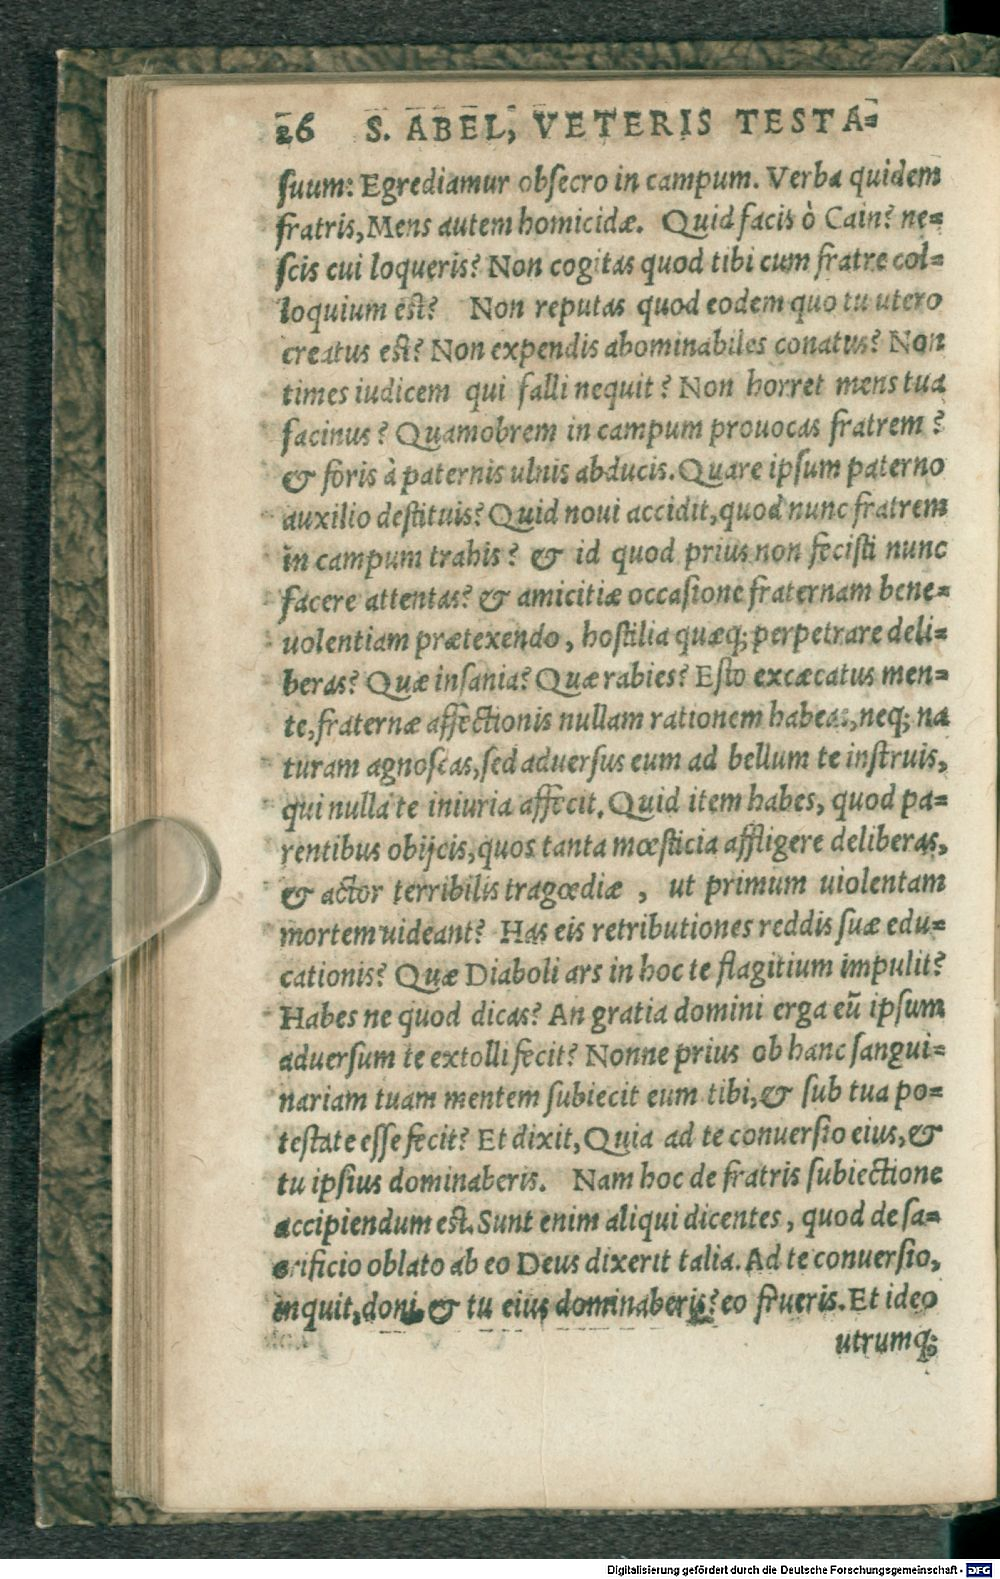 26 S. ABEL, VETERIS TESTA=
suum: Egrediamur obsecro in campum. Verba quidem
fratris, Mens autem homicidæ. Quid facis ò Cain? ne=
scis cui loqueris? Non cogitas quod tibi cum fratre col=
loquium est? Non reputas quod eodem quo tu utero
creatus est? Non expendis abominabiles conatus? Non
times iudicem qui falli nequit? Non horret mens tua
facinus? Quamobrem in campum prouocas fratrem?
& foris à paternis ulnis abducis. Quare ipsum paterno
auxilio destituis? Quid noui accidit, quod nunc fratrem
in campum trahis? & id quod prius non fecisti nunc
facere attentas? & amicitiæ occasione fraternam bene=
uolentiam prætexendo, hostilia quæq; perpetrare deli=
beras? Quæ insania? Quæ rabies? Esto excæcatus men=
te, fraternæ affectionis nullam rationem habeas, neq; na
turam agnoscas, sed aduersus eum ad bellum te instruis,
qui nulla te iniuria affecit. Quid item habes, quod pa=
rentibus obijcis, quos tanta mœsticia affligere deliberas,
& actor terribilis tragœdiæ, ut primum uiolentam
mortem uideant? Has eis retributiones reddis suæ edu=
cationis? Quæ Diaboli ars in hoc te flagitium impulit?
Habes ne quod dicas? An gratia domini erga eũ ipsum
aduersum te extolli fecit? Nonne prius ob hanc sangui=
nariam tuam mentem subiecit eum tibi, & sub tua po=
testate esse fecit? Et dixit, Quia ad te conuersio eius, &
tu ipsius dominaberis. Nam hoc de fratris subiectione
accipiendum est. Sunt enim aliqui dicentes, quod de sa=
crificio oblato ab eo Deus dixerit talia. Ad te conuersio,
inquit, doni, & tu eius dominaberis? eo frueris. Et ideo
utrumq;
Digitalisierung gefördert durch die Deutsche Forschungsgemeinschaft - DFG